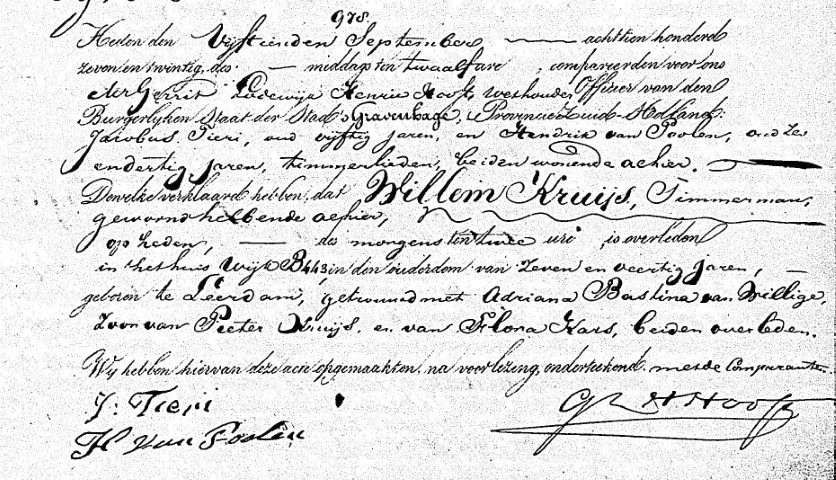 978.
Heden den Vijftienden September achttien honderd
zeven en twintig, des middags ten twaalf ure, compareerden voor ons
Gerrit Lodewijk Henrik Hooft, Wethouder, Officier van den
Burgerlijken Staat der Stad 's Gravenhage, Provincie Zuid-Holland:
Jacobus Pieri, oud vijftig jaren, en Hendrik van Poolen, oud zes
en dertig jaren, timmerlieden, beiden wonende alhier.
Dewelke verklaard hebben, dat Willem Kruijs, Timmerman,
gewoond hebbende alhier,
op heden, des morgens ten twee ure, is overleden
in het huis Wijk B 443, in den ouderdom van zeven en veertig jaren,
geboren te Leerdam, getrouwd met Adriana Bastina van Willige,
zoon van Pieter Kruijs, en van Flora Kars, beiden overleden.
Wij hebben hiervan deze acte opgemaakt en, na voorlezing, onderteekend met de Comparanten.
J: Pieri
H van Poolen
GLH Hooft